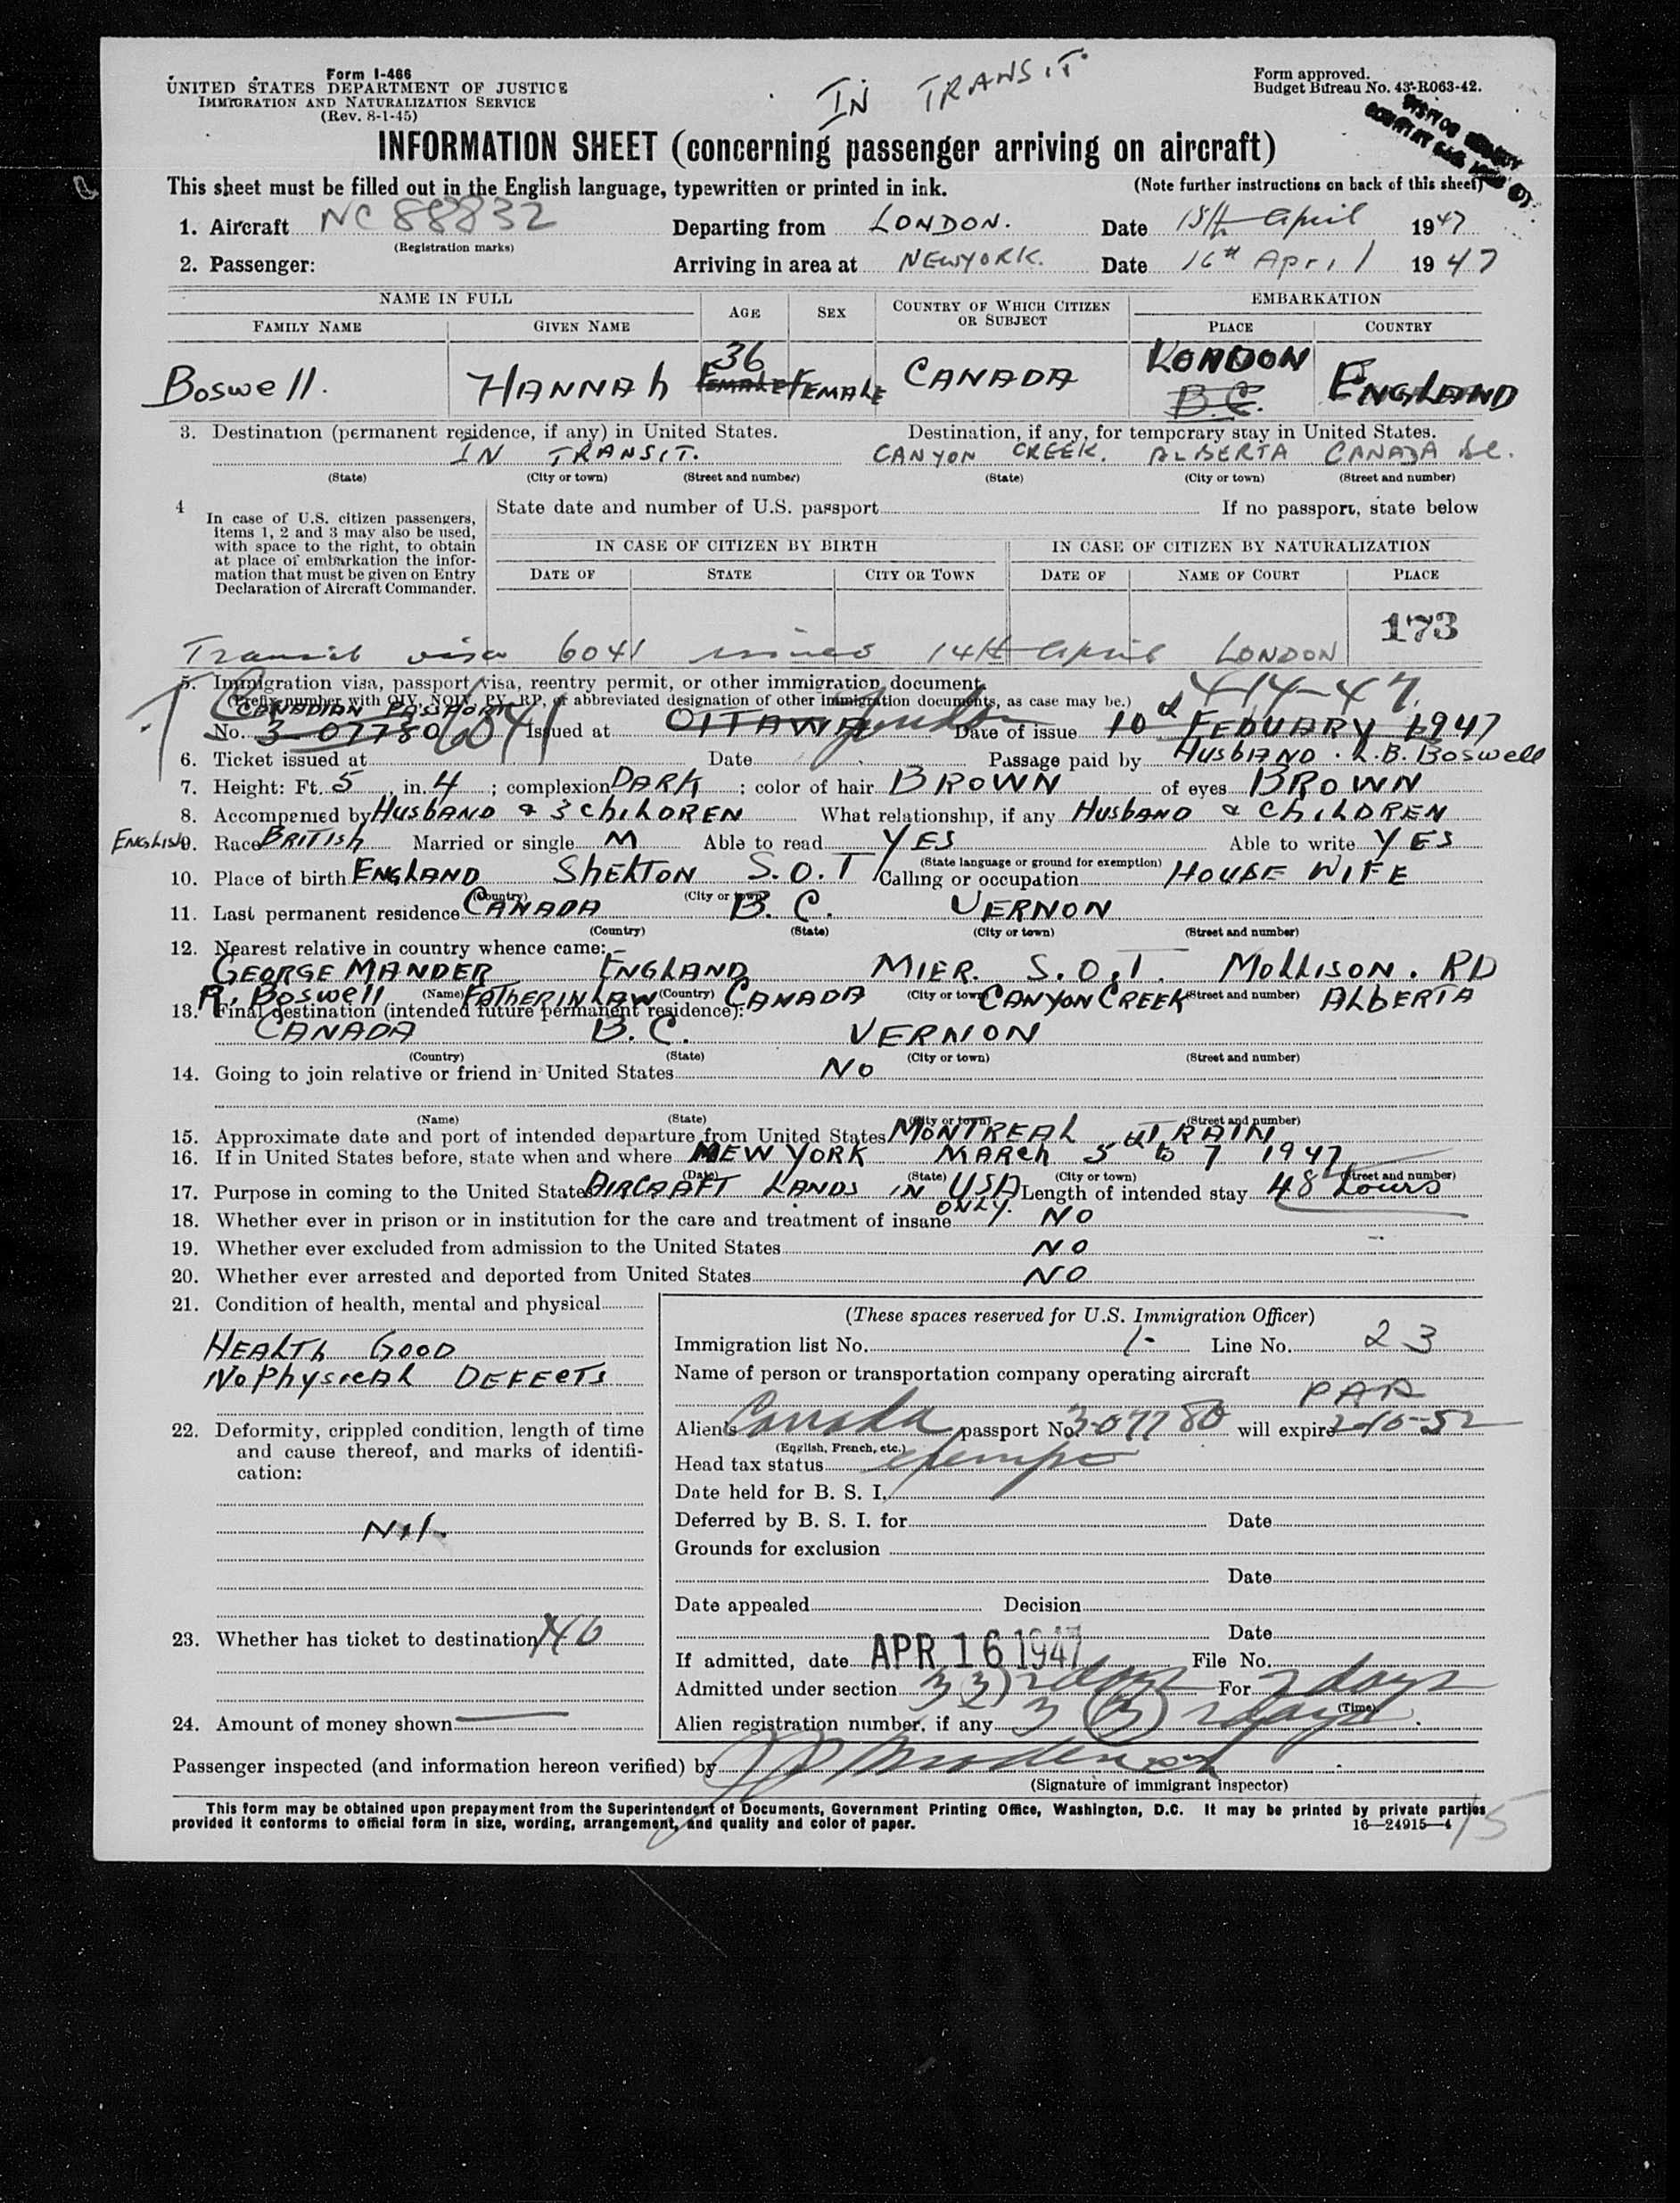 Form I-466
UNITED STATES DEPARTMENT OF JUSTICE
IMMIGRATION AND NATURALIZATION SERVICE
(Rev. 8-1-45)
IN TRANSIT
Form approved.
Budget Bureau No. 43-R063-42.
INFORMATION SHEET (concerning passenger arriving on aircraft)
This sheet must be filled out in the English language, typewritten or printed in ink. (Note further instructions on back of this sheet)
1. Aircraft NC 88832 Departing from LONDON. Date 15th April 1947
(Registration marks)
2. Passenger: Arriving in area at NEWYORK. Date 16th April 1947
NAME IN FULL AGE SEX COUNTRY OF WHICH CITIZEN OR SUBJECT EMBARKATION
FAMILY NAME GIVEN NAME PLACE COUNTRY
Boswell. HANNAh 36 FEMALE FEMALE CANADA LONDON B.C. ENGLAND
3. Destination (permanent residence, if any) in United States. Destination, if any, for temporary stay in United States.
IN TRANSIT. CANYON CREEK. ALBERTA CANADA
(State) (City or town) (Street and number) (State) (City or town) (Street and number)
4 In case of U.S. citizen passengers, items 1, 2 and 3 may also be used, with space to the right, to obtain at place of embarkation the information that must be given on Entry Declaration of Aircraft Commander.
State date and number of U.S. passport If no passport, state below
IN CASE OF CITIZEN BY BIRTH IN CASE OF CITIZEN BY NATURALIZATION
DATE OF STATE CITY OR TOWN DATE OF NAME OF COURT PLACE
173
Transit visa 6041 issued 14th April LONDON
5. Immigration visa, passport visa, reentry permit, or other immigration document
(Prefix number with QIV, NQIV, PV, RP, or abbreviated designation of other immigration documents, as case may be.) 4-14-47
CANADIAN PASSPORT
No. 3-07780 6041 Issued at OTTAWA London Date of issue 10 FEDUARY 1947
6. Ticket issued at Date Passage paid by HUSBAND. L.B. Boswell
7. Height: Ft. 5 in. 4; complexion DARK; color of hair BROWN of eyes BROWN
8. Accompanied by HUSBAND & 3 ChILDREN What relationship, if any HUSBAND & ChILDREN
ENGLISH 9. Race BRITISh Married or single M Able to read YES Able to write YES
(State language or ground for exemption)
10. Place of birth ENGLAND ShELTON S.O.T Calling or occupation HOUSE WIFE
(Country) (City or town)
11. Last permanent residence CANADA B.C. VERNON
(Country) (State) (City or town) (Street and number)
12. Nearest relative in country whence came:
GEORGE MANDER ENGLAND MIER. S.O.T. MOLLISON. RD
(Name) (Country) (City or town) (Street and number)
R. Boswell FATHER IN LAW CANADA CANYON CREEK ALBERTA
13. Final destination (intended future permanent residence):
CANADA B.C. VERNON
(Country) (State) (City or town) (Street and number)
14. Going to join relative or friend in United States No
(Name) (State) (City or town) (Street and number)
15. Approximate date and port of intended departure from United States MONTREAL TRAIN
16. If in United States before, state when and where NEW YORK MARCh 5 to 7 1947
(Date) (State) (City or town) (Street and number)
17. Purpose in coming to the United States AIRCRAFT LANDS IN USA ONLY. Length of intended stay 48 hours
18. Whether ever in prison or in institution for the care and treatment of insane NO
19. Whether ever excluded from admission to the United States NO
20. Whether ever arrested and deported from United States NO
21. Condition of health, mental and physical
HEALTh GOOD
No PhysicAL DEFECTS
22. Deformity, crippled condition, length of time and cause thereof, and marks of identification:
Nil.
23. Whether has ticket to destination NO
24. Amount of money shown
(These spaces reserved for U.S. Immigration Officer)
Immigration list No. 1- Line No. 23
Name of person or transportation company operating aircraft
PAA
Alien's Canada passport No. 3-07780 will expire 2-10-52
(English, French, etc.)
Head tax status exempt
Date held for B. S. I.
Deferred by B. S. I. for Date
Grounds for exclusion
Date
Date appealed Decision
Date
If admitted, date APR 16 1947 File No.
Admitted under section 3(3) 2 days For 2 days
(Time)
Alien registration number, if any 3 (3) 2 days
Passenger inspected (and information hereon verified) by
(Signature of immigrant inspector)
This form may be obtained upon prepayment from the Superintendent of Documents, Government Printing Office, Washington, D.C. It may be printed by private parties
provided it conforms to official form in size, wording, arrangement, and quality and color of paper. 16—24915—4
15